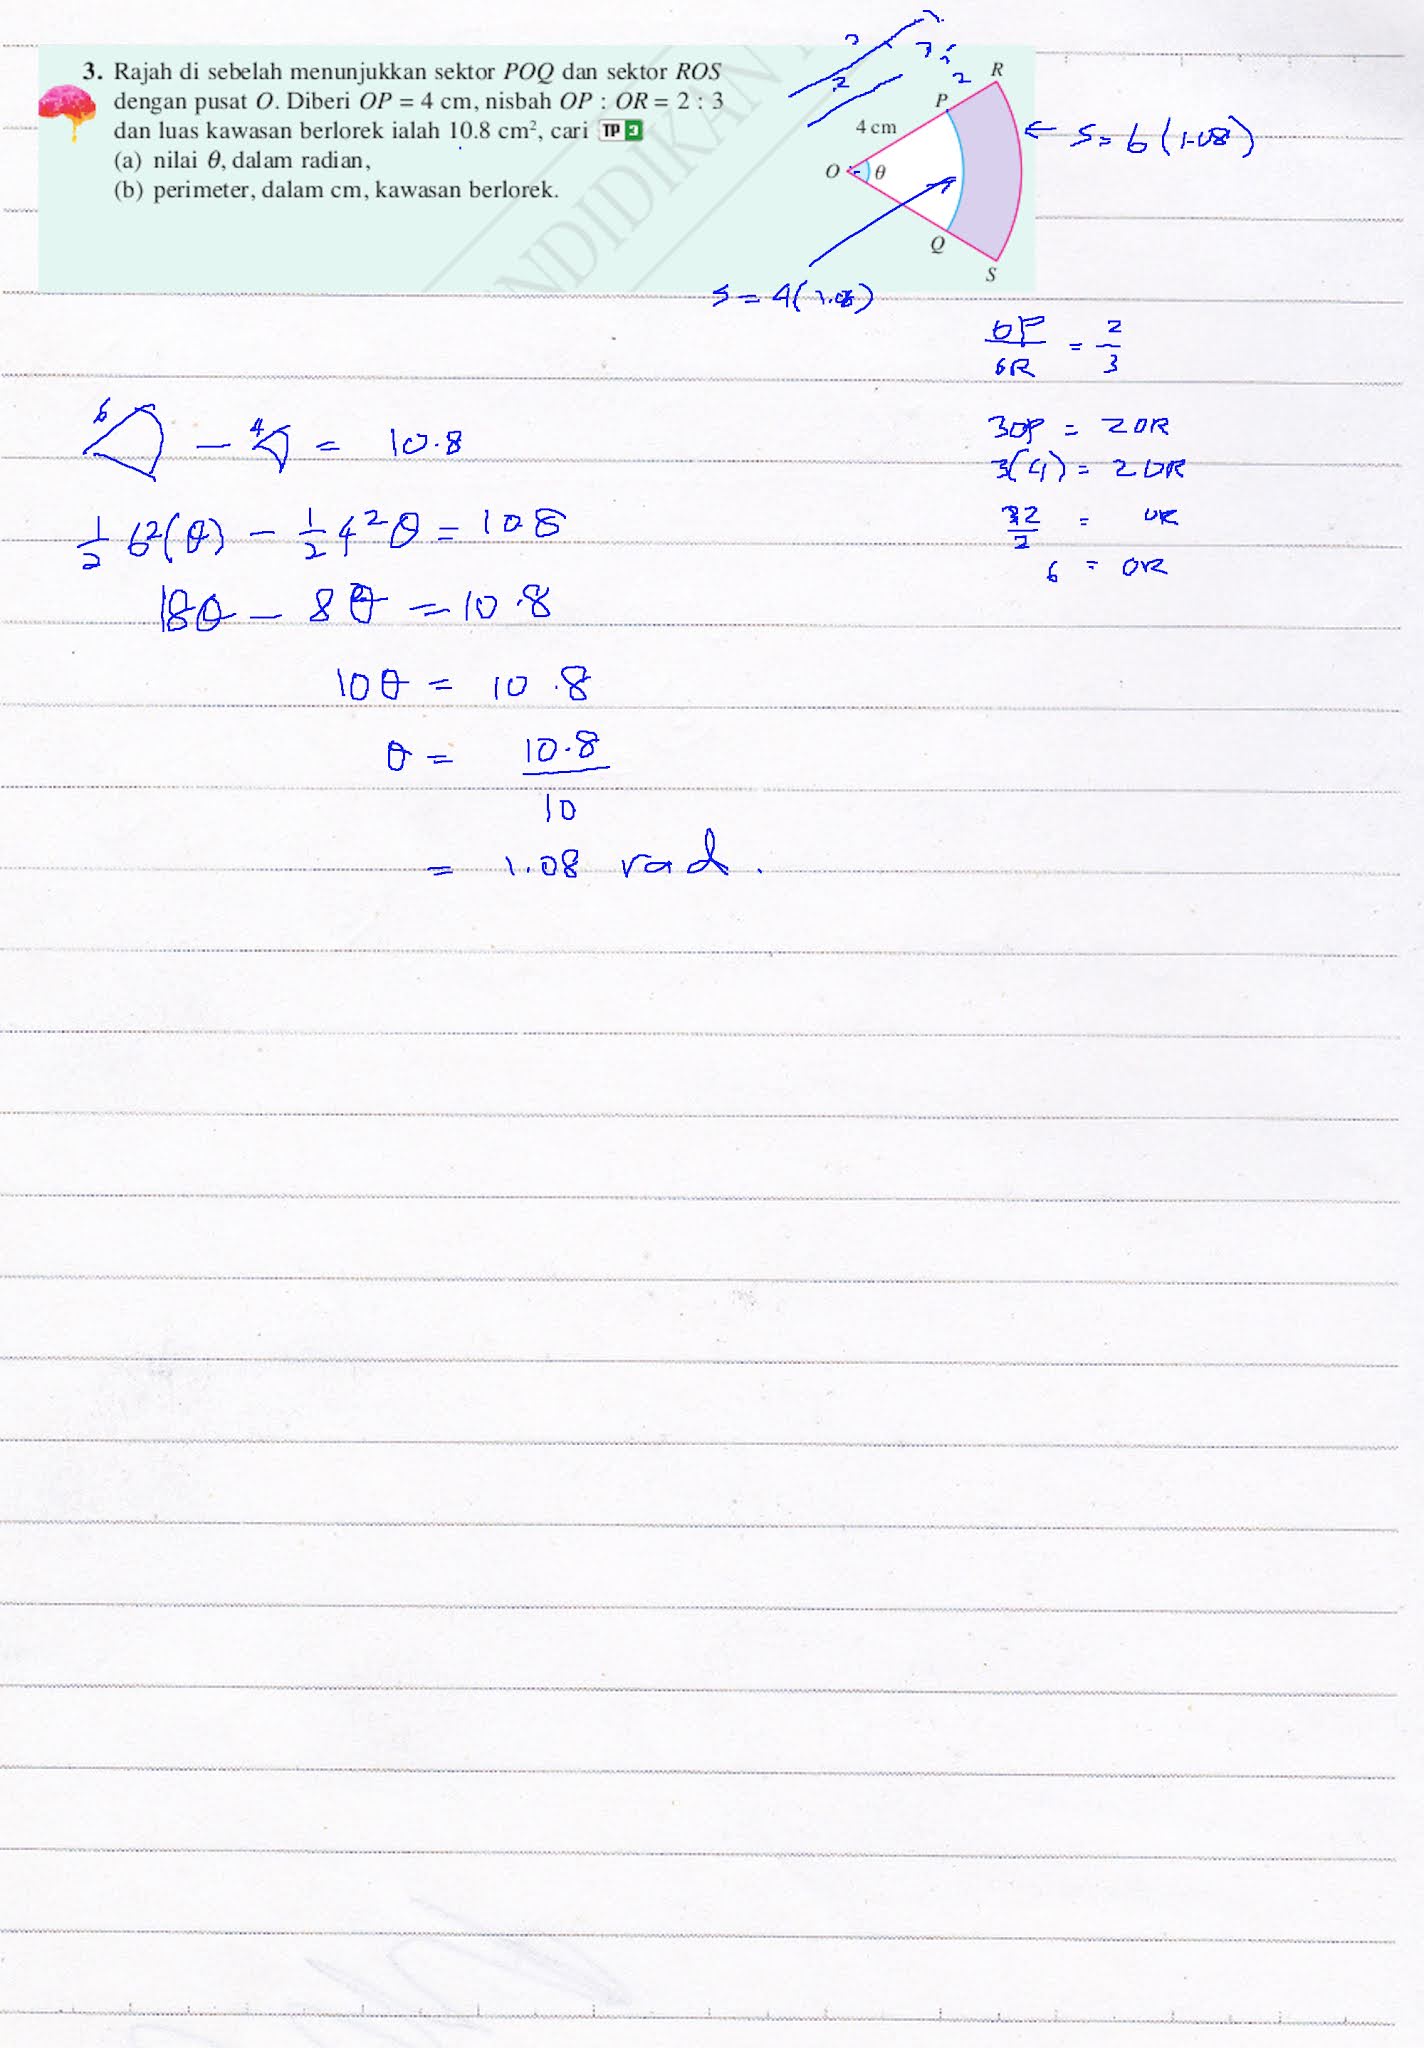 3. Rajah di sebelah menunjukkan sektor POQ dan sektor ROS
dengan pusat O. Diberi OP = 4 cm, nisbah OP : OR = 2 : 3
dan luas kawasan berlorek ialah 10.8 cm², cari TP 3
(a) nilai θ, dalam radian,
(b) perimeter, dalam cm, kawasan berlorek.
NDIDIKAN
R
P
2
4 cm
O
θ
Q
S
← S = 6 (1.08)
S = 4(1.08)
OP/OR = 2/3
3OP = 2OR
3(4) = 2OR
12/2 = OR
6 = OR
6 - 4 = 10.8
1/2 6²(θ) - 1/2 4²θ = 10.8
18θ - 8θ = 10.8
10θ = 10.8
θ = 10.8/10
= 1.08 rad.